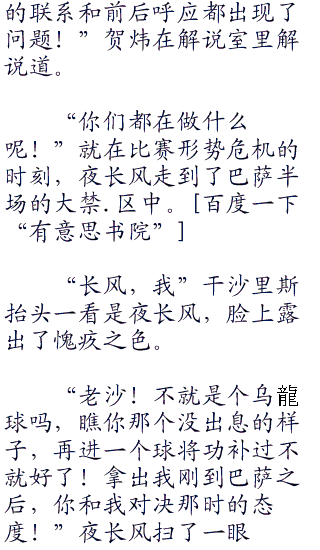 的联系和前后呼应都出现了
问题！”贺炜在解说室里解
说道。
“你们都在做什么
呢！”就在比赛形势危机的
时刻，夜长风走到了巴萨半
场的大禁.区中。[百度一下
“有意思书院”]
“长风，我”干沙里斯
抬头一看是夜长风，脸上露
出了愧疚之色。
“老沙！不就是个乌龍
球吗，瞧你那个没出息的样
子，再进一个球将功补过不
就好了！拿出我刚到巴萨之
后，你和我对决那时的态
度！”夜长风扫了一眼